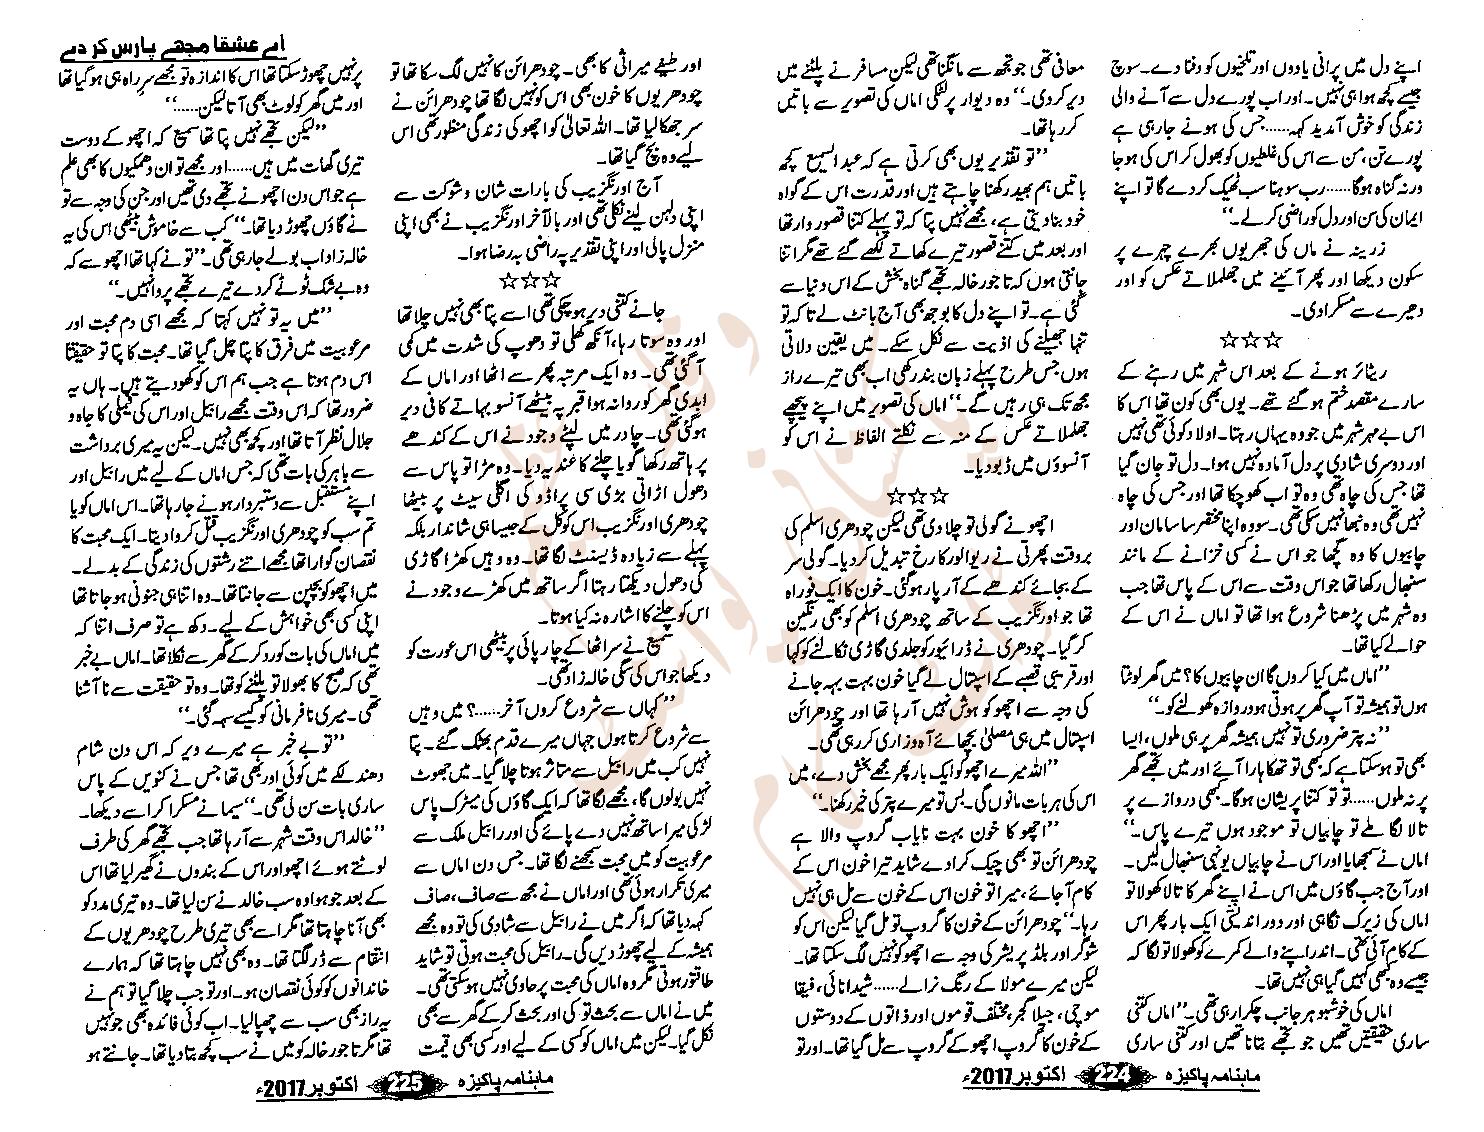 اپنے دل میں پرانی یادوں اور تلخیوں کو دفنا دے۔ سوچ
جیسے کچھ ہوا ہی نہیں۔ اور اب پورے دل سے آنے والی
زندگی کو خوش آمدید کہہ......جس کی ہونے جا رہی ہے
پورے تن، من سے اس کی غلطیوں کو بھول کر اس کی ہو جا
ورنہ گناہ ہوگا......رب سوہنا سب ٹھیک کر دے گا تو اپنے
ایمان کی سن اور دل کو راضی کر لے۔‘‘
زرینہ نے ماں کی جھریوں بھرے چہرے پر
سکون دیکھا اور پھر آئینے میں جھلملاتے عکس کو اور
دھیرے سے مسکرا دی۔
☆☆☆
ریٹائر ہونے کے بعد اس شہر میں رہنے کے
سارے مقصد ختم ہو گئے تھے۔ یوں بھی کون تھا اس کا
اس بے مہر شہر میں جو وہ یہاں رہتا۔ اولاد کوئی تھی نہیں
اور دوسری شادی پر دل آمادہ نہیں ہوا۔ دل تو جان گیا
تھا جس کی چاہ تھی وہ تو اب کھو چکا تھا اور جس کی چاہ
نہیں تھی وہ نبھا نہیں سکی تھی۔ سو وہ اپنا مختصر سا سامان اور
چابیوں کا وہ گچھا جو اس نے کسی خزانے کے مانند
سنبھال رکھا تھا جو اس وقت سے اس کے پاس تھا جب
وہ شہر میں پڑھنا شروع ہوا تھا تو اماں نے اس کے
حوالے کیا تھا۔
’’اماں میں کیا کروں گا ان چابیوں کا؟ میں گھر لوٹتا
ہوں تو ہمیشہ تو آپ گھر پر ہوتی ہو دروازہ کھولنے کو۔‘‘
’’نہ پتر ضروری تو نہیں ہمیشہ گھر پر ہی ملوں، ایسا
بھی تو ہو سکتا ہے کہ بھی تو تھکا ہارا آئے اور میں تجھے گھر
پر نہ ملوں......تو تو کتنا پریشان ہوگا۔ کبھی دروازے پر
تالا لگا ملے تو چابیاں تو موجود ہوں تیرے پاس۔‘‘
اماں نے سمجھایا اور اس نے چابیاں یونہی سنبھال لیں۔
اور آج جب گاؤں میں اس نے اپنے گھر کا تالا کھولا تو
اماں کی زیرک نگاہی اور دور اندیشی ایک بار پھر اس
کے کام آئی تھی۔ اندر اپنے والے کمرے کو کھولا تو لگا کہ
جیسے وہ کبھی کہیں گیا ہی نہیں تھا۔
اماں کی خوشبو ہر جانب چکرا رہی تھی۔ ’’اماں کتنی
ساری حقیقتیں تھیں جو تجھے بتانا تھیں اور کتنی ساری
معافی تھی جو تجھ سے مانگنا تھی لیکن مسافر نے پلٹنے میں
دیر کر دی۔‘‘ وہ دیوار پر لٹکی اماں کی تصویر سے باتیں
کر رہا تھا۔
’’تو تقدیر یوں بھی کرتی ہے کہ عبد السمیع کچھ
باتیں ہم بھید رکھنا چاہتے ہیں اور قدرت اس کے گواہ
خود بنا دیتی ہے، مجھے نہیں پتا کہ تو پہلے کتنا قصوروار تھا
اور بعد میں کتنے قصور تیرے کھاتے لکھے گئے تھے مگر اتنا
جانتی ہوں کہ تاجور خالہ تجھے گناہ بخش کے اس دنیا سے
گئی ہے۔ تو اپنے دل کا بوجھ بھی آج بانٹ لے تاکہ تو
تنہا جھیلنے کی اذیت سے نکل سکے۔ میں یقین دلاتی
ہوں جس طرح پہلے زبان بند رکھی اب بھی تیرے راز
مجھ تک ہی رہیں گے۔‘‘ اماں کی تصویر میں اپنے پیچھے
جھلملاتے عکس کے منہ سے نکلتے الفاظ نے اس کو
آنسوؤں میں ڈبو دیا۔
☆☆☆
اچھو نے گولی تو چلا دی تھی لیکن چودھری اسلم کی
بروقت پھرتی نے ریوالور کا رخ تبدیل کر دیا۔ گولی سر
کے بجائے کندھے کے آر پار ہو گئی۔ خون کا ایک فوراہ
تھا جو اورنگزیب کے ساتھ چودھری اسلم کو بھی رنگین
کر گیا۔ چودھری نے ڈرائیور کو جلدی گاڑی نکالنے کو کہا
اور قریبی قصبے کے اسپتال لے گیا خون بہت بہہ جانے
کی وجہ سے اچھو کو ہوش نہیں آ رہا تھا اور چودھرائن
اسپتال میں ہی مصلیٰ بچھائے آہ و زاری کر رہی تھی۔
’’اللہ میرے اچھو کو ایک بار پھر مجھے بخش دے، میں
اس کی ہر بات مانوں گی۔ بس تو میرے پتر کی خیر رکھنا۔‘‘
’’اچھو کا خون بہت نایاب گروپ والا ہے
چودھرائن تو بھی چیک کرا دے شاید تیرا خون اس کے
کام آ جائے، میرا تو خون اس کے خون سے مل ہی نہیں
رہا۔‘‘ چودھرائن کے خون کا گروپ تو مل گیا لیکن اس کو
شوگر اور بلڈ پریشر کی وجہ سے اچھو کو نہیں لگ سکتا تھا۔
لیکن میرے مولا کے رنگ نرالے......شیدا نائی، فیقا
موچی، جیلا گجر، مختلف قوموں اور ذاتوں کے دوستوں
کے خون کا گروپ اچھو کے گروپ سے مل گیا تھا۔ اور تو
ماہنامہ پاکیزہ 224 اکتوبر 2017ء
اے عشقا مجھے پارس کر دے
اور طیفے میراثی کا بھی۔ چودھرائن کا نہیں لگ سکا تھا تو
چودھریوں کا خون بھی اس کو نہیں لگا تھا چودھرائن نے
سر جھکا لیا تھا۔ اللہ تعالیٰ کو اچھو کی زندگی منظور تھی اس
لیے وہ بچ گیا تھا۔
آج اورنگزیب کی بارات شان و شوکت سے
اپنی دلہن لینے نکلی تھی اور بالآخر اورنگزیب نے بھی اپنی
منزل پا لی اور اپنی تقدیر پہ راضی بہ رضا ہوا۔
☆☆☆
جانے کتنی دیر ہو چکی تھی اسے پتا بھی نہیں چلا تھا
اور وہ سوتا رہا، آنکھ کھلی تو دھوپ کی شدت میں کمی
آ گئی تھی۔ وہ ایک مرتبہ پھر سے اٹھا اور اماں کے
ابدی گھر کو روانہ ہوا قبر پہ بیٹھے آنسو بہاتے کافی دیر
ہو گئی تھی۔ چادر میں لپٹے وجود نے اس کے کندھے
پر ہاتھ رکھا گویا چلنے کا عندیہ دیا۔ وہ مڑا تو پاس سے
دھول اڑاتی بڑی سی پراڈو کی اگلی سیٹ پر بیٹھا
چودھری اورنگزیب اس کو کل کے جیسا ہی شاندار بلکہ
پہلے سے زیادہ ڈیسنٹ لگا تھا۔ وہ وہیں کھڑا گاڑی
کی دھول دیکھتا رہتا اگر ساتھ میں کھڑے وجود نے
اس کو چلنے کا اشارہ نہ کیا ہوتا۔
سمیع نے سر اٹھا کے چارپائی پر بیٹھی اس عورت کو
دیکھا جو اس کی سگی خالہ زاد تھی۔
’’کہاں سے شروع کروں آخر......؟ میں وہیں
سے شروع کرتا ہوں جہاں میرے قدم بھٹک گئے۔ پتا
نہیں کب میں رابیل سے متاثر ہوتا چلا گیا۔ میں جھوٹ
نہیں بولوں گا، مجھے لگا تھا کہ ایک گاؤں کی میٹرک پاس
لڑکی میرا ساتھ نہیں دے پائے گی اور رابیل ملک سے
مرعوبیت کو میں محبت سمجھنے لگا تھا۔ جس دن اماں سے
میری تکرار ہوئی تھی اور اماں نے مجھ سے صاف، صاف
کہہ دیا تھا کہ اگر میں نے رابیل سے شادی کی تو وہ مجھے
ہمیشہ کے لیے چھوڑ دیں گی۔ رابیل کی محبت ہوتی تو شاید
طاقتور ہوتی مگر وہ اماں کی محبت پر حاوی نہیں ہو سکتی تھی۔
میں نے اماں سے بحث تو کی اور بحث کر کے گھر سے بھی
نکل گیا۔ لیکن میں اماں کو کسی کے لیے اور کسی بھی قیمت
پر نہیں چھوڑ سکتا تھا اس کا اندازہ تو مجھے سرِ راہ ہی ہو گیا تھا
اور میں گھر کو لوٹ بھی آتا لیکن......‘‘
’’لیکن تجھے نہیں پتا تھا سمیع کہ اچھو کے دوست
تیری گھات میں ہیں......اور مجھے تو ان دھمکیوں کا بھی علم
ہے جو اس دن اچھو نے تجھے دی تھیں اور جن کی وجہ سے تو
نے گاؤں چھوڑ دیا تھا۔‘‘ کب سے خاموش بیٹھی اس کی یہ
خالہ زاد اب بولے جا رہی تھی۔ ’’تو نے کہا تھا اچھو سے کہ
وہ بے شک ٹوٹے کر دے تیرے تجھے پروا نہیں۔‘‘
’’میں یہ تو نہیں کہتا کہ مجھے اسی دم محبت اور
مرعوبیت میں فرق کا پتا چل گیا تھا۔ محبت کا پتا تو حقیقتاً
اس دم ہوتا ہے جب ہم اس کو کھو دیتے ہیں۔ ہاں یہ
ضرور تھا کہ اس وقت مجھے رابیل اور اس کی فیملی کا جاہ و
جلال نظر آتا تھا اور کچھ بھی نہیں۔ لیکن یہ میری برداشت
سے باہر کی بات تھی کہ جس اماں کے لیے میں رابیل اور
اپنے مستقبل سے دستبردار ہونے جا رہا تھا۔ اس اماں کو یا
تم سب کو چودھری اورنگزیب قتل کروا دیتا۔ ایک محبت کا
نقصان گوارا تھا مجھے اتنے رشتوں کی زندگی کے بدلے۔
میں اچھو کو بچپن سے جانتا تھا۔ وہ اتنا ہی جنونی ہو جاتا تھا
اپنی کسی بھی خواہش کے لیے۔ دکھ ہے تو صرف اتنا کہ
میں اماں کی بات کو رد کر کے گھر سے نکلا تھا۔ اماں بے خبر
تھی کہ صبح کا بھولا تو پلٹنے کو تھا۔ وہ تو حقیقت سے نا آشنا
تھی۔ میری نافرمانی کو کیسے سہہ گئی۔‘‘
’’تو بے خبر ہے میرے ویر کہ اس دن شام
دھندلکے میں کوئی اور بھی تھا جس نے کنویں کے پاس
ساری بات سن لی تھی۔‘‘ سیما نے مسکرا کر اسے دیکھا۔
’’خالد اس وقت شہر سے آ رہا تھا جب تجھے گھر کی طرف
لوٹتے ہوئے اچھو اور اس کے بندوں نے گھیر لیا تھا اس
کے بعد جو ہوا وہ سب خالد نے سن لیا تھا۔ وہ تیری مدد کو
بھی آنا چاہتا تھا مگر اسے بھی تیری طرح چودھریوں کے
انتقام سے ڈر لگتا تھا۔ وہ بھی نہیں چاہتا تھا کہ ہمارے
خاندانوں کو کوئی نقصان ہو۔ اور تو جب چلا گیا تو ہم نے
یہ راز بھی سب سے چھپا لیا۔ اب کوئی فائدہ بھی جو نہیں
تھا مگر تاجور خالہ کو میں نے سب کچھ بتا دیا تھا۔ جانتے ہو
ماہنامہ پاکیزہ 225 اکتوبر 2017ء